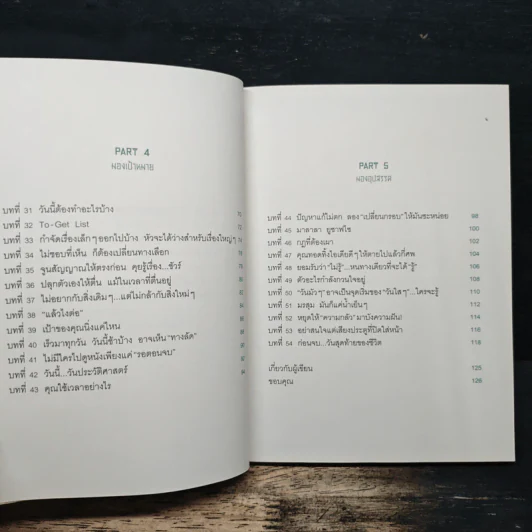 PART 4
มองเป้าหมาย
บทที่ 31 วันนี้ต้องทำอะไรบ้าง
บทที่ 32 To-Get List
บทที่ 33 กำจัดเรื่องเล็กๆ ออกไปบ้าง หัวจะได้ว่างสำหรับเรื่องใหญ่ๆ
บทที่ 34 ไม่ชอบที่เห็น ก็ต้องเปลี่ยนทางเลือก
บทที่ 35 จูนสัญญาณให้ตรงก่อน คุยรู้เรื่อง...ชัวร์
บทที่ 36 ปลุกตัวเองให้ตื่น แม้ในเวลาที่ตื่นอยู่
บทที่ 37 ไม่อยากกับสิ่งเดิมๆ...แต่ไม่กล้ากับสิ่งใหม่ๆ
บทที่ 38 "แล้วไงต่อ"
บทที่ 39 เป้าของคุณนิ่งแค่ไหน
บทที่ 40 เร็วมาทุกวัน วันนี้ช้าบ้าง อาจเห็น "ทางลัด"
บทที่ 41 ไม่มีใครไปดูหนังเพียงแค่ "รอตอนจบ"
บทที่ 42 วันนี้...วันประวัติศาสตร์
บทที่ 43 คุณใช้เวลาอย่างไร
PART 5
มองอุปสรรค
บทที่ 44 ปัญหาแก้ไม่ตก ลอง "เปลี่ยนกรอบ" ให้มันซะหน่อย 98
บทที่ 45 มาลาลา ยูซาฟไซ 100
บทที่ 46 กฎที่ต้องเมา 102
บทที่ 47 คุณทอดทิ้งไอเดียดีๆ ให้ตายไปแล้วกี่ศพ 104
บทที่ 48 ยอมรับว่า "ไม่รู้"...หนทางเดียวที่จะได้ "รู้" 106
บทที่ 49 ตัวอะไรกำลังกวนใจอยู่ 108
บทที่ 50 "วันมัวๆ" อาจเป็นจุดเริ่มของ "วันใสๆ"...ใครจะรู้ 110
บทที่ 51 มรสุม มันก็แค่น้ำเย็นๆ 112
บทที่ 52 หยุดให้ "ความกลัว" มาบังความฝัน! 114
บทที่ 53 อย่าสนใจแค่เสียงประตูที่ปิดใส่หน้า 116
บทที่ 54 ก่อนจบ...วันสุดท้ายของชีวิต 118
เกี่ยวกับผู้เขียน 125
ขอบคุณ 126